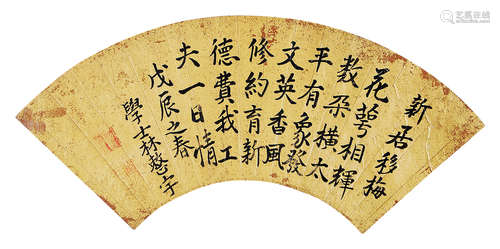 新居移梅
花萼相輝
数朶橫太
平有象發
文英香風
修約育新
德費我工
夫一日情
戊辰之春
學士林慜字